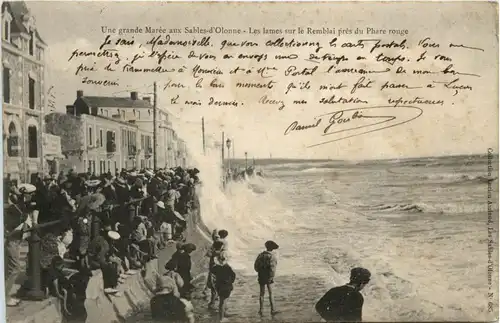 Une grande Marée aux Sables-d'Olonne - Les lames sur le Remblai près du Phare rouge
Je sais, Mademoiselle, que vous collectionnez les cartes postales. Vous me
permettrez, j'espère de vous en envoyer une de temps en temps. Je vous
prie de transmettre à Monsieur et à Mme Portal l'assurance de mon bon
souvenir pour les bons moments qu'ils m'ont fait passer à Luçon
mois dernier. Recevez mes salutations respectueuses
Daniel
Collection
Les Sables-d'Olonne